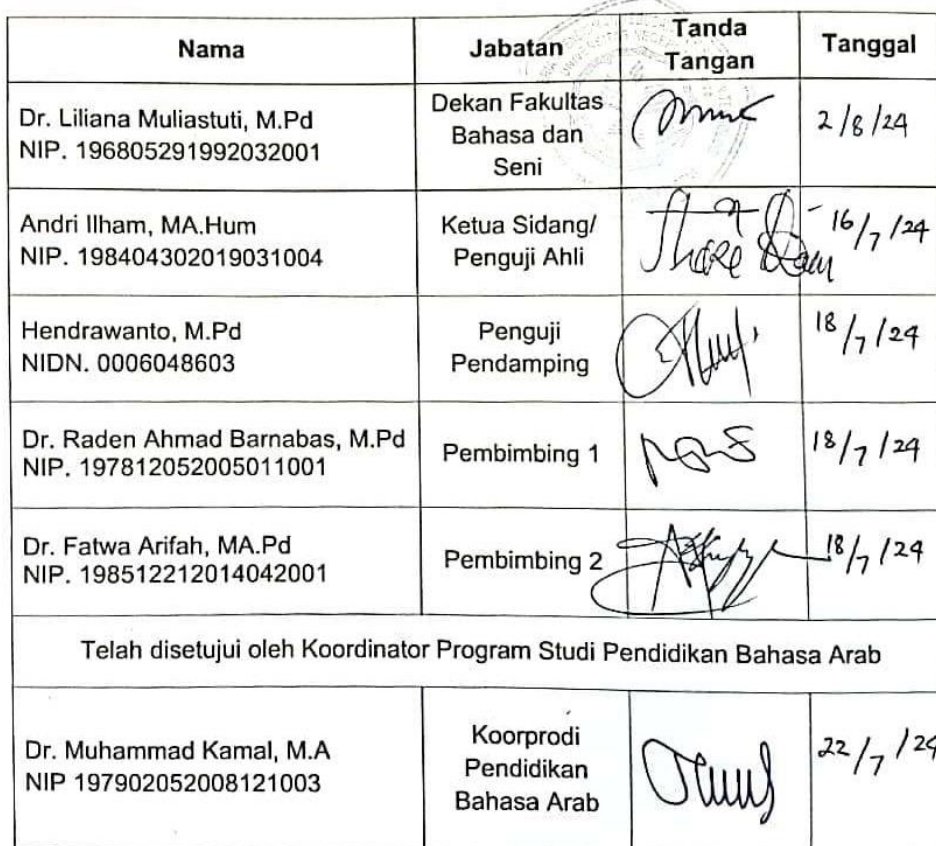 Nama
Jabatan
Tanda
Tangan
Tanggal
Dr. Liliana Muliastuti, M.Pd
NIP. 196805291992032001
Dekan Fakultas
Bahasa dan
Seni
2/8/24
Andri Ilham, MA.Hum
NIP. 198404302019031004
Ketua Sidang/
Penguji Ahli
16/7/24
Hendrawanto, M.Pd
NIDN. 0006048603
Penguji
Pendamping
18/7/24
Dr. Raden Ahmad Barnabas, M.Pd
NIP. 197812052005011001
Pembimbing 1
18/7/24
Dr. Fatwa Arifah, MA.Pd
NIP. 198512212014042001
Pembimbing 2
18/7/24
Telah disetujui oleh Koordinator Program Studi Pendidikan Bahasa Arab
Dr. Muhammad Kamal, M.A
NIP 197902052008121003
Koorprodi
Pendidikan
Bahasa Arab
22/7/24